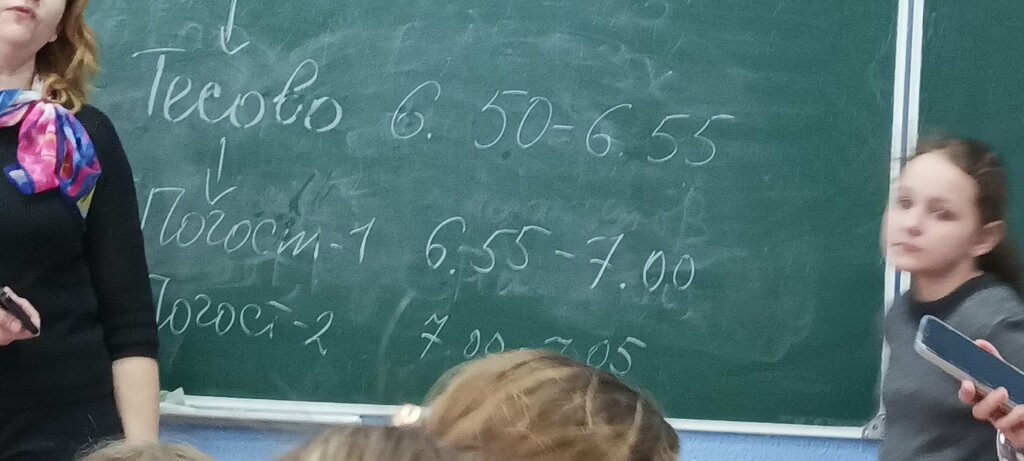 Тесово 6.50-6.55
Погост-1 6.55-7.00
Погост-2 7.00-7.05